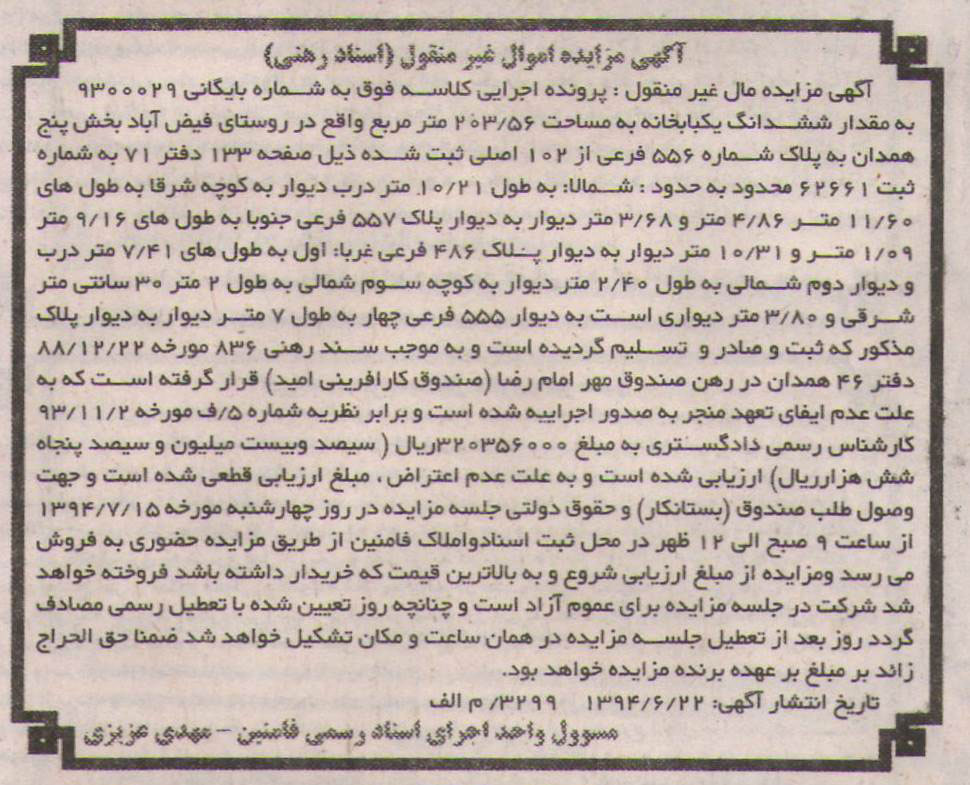 آگهی مزایده اموال غیر منقول (اسناد رهنی)
آگهی مزایده مال غیر منقول : پرونده اجرایی کلاسه فوق به شماره بایگانی ۹۳۰۰۰۲۹
به مقدار ششدانگ یکبابخانه به مساحت ۲۰۳/۵۶ متر مربع واقع در روستای فیض آباد بخش پنج
همدان به پلاک شماره ۵۵۶ فرعی از ۱۰۲ اصلی ثبت شده ذیل صفحه ۱۳۳ دفتر ۷۱ به شماره
ثبت ۶۲۶۶۱ محدود به حدود : شمالا: به طول ۱۰/۲۱ متر درب دیوار به کوچه شرقا به طول های
۱۱/۶۰ متر ۴/۸۶ متر و ۳/۶۸ متر دیوار به دیوار پلاک ۵۵۷ فرعی جنوبا به طول های ۹/۱۶ متر
۱/۰۹ متر و ۱۰/۳۱ متر دیوار به دیوار پلاک ۴۸۶ فرعی غربا: اول به طول های ۷/۴۱ متر درب
و دیوار دوم شمالی به طول ۲/۴۰ متر دیوار به کوچه سوم شمالی به طول ۲ متر ۳۰ سانتی متر
شرقی و ۳/۸۰ متر دیواری است به دیوار ۵۵۵ فرعی چهار به طول ۷ متر دیوار به دیوار پلاک
مذکور که ثبت و صادر و تسلیم گردیده است و به موجب سند رهنی ۸۳۶ مورخه ۸۸/۱۲/۲۲
دفتر ۴۶ همدان در رهن صندوق مهر امام رضا (صندوق کارافرینی امید) قرار گرفته است که به
علت عدم ایفای تعهد منجر به صدور اجراییه شده است و برابر نظریه شماره ۵/ف مورخه ۹۳/۱۱/۲
کارشناس رسمی دادگستری به مبلغ ۳۲۰۳۵۶۰۰۰ریال ( سیصد وبیست میلیون و سیصد پنجاه
شش هزارریال) ارزیابی شده است و به علت عدم اعتراض ، مبلغ ارزیابی قطعی شده است و جهت
وصول طلب صندوق (بستانکار) و حقوق دولتی جلسه مزایده در روز چهارشنبه مورخه ۱۳۹۴/۷/۱۵
از ساعت ۹ صبح الی ۱۲ ظهر در محل ثبت اسنادواملاک فامنین از طریق مزایده حضوری به فروش
می رسد ومزایده از مبلغ ارزیابی شروع و به بالاترین قیمت که خریدار داشته باشد فروخته خواهد
شد شرکت در جلسه مزایده برای عموم آزاد است و چنانچه روز تعیین شده با تعطیل رسمی مصادف
گردد روز بعد از تعطیل جلسه مزایده در همان ساعت و مکان تشکیل خواهد شد ضمنا حق الحراج
زائد بر مبلغ بر عهده برنده مزایده خواهد بود.
تاریخ انتشار آگهی: ۱۳۹۴/۶/۲۲ ۳۲۹۹/ م الف
مسوول واحد اجرای اسناد رسمی فامنین – مهدی عزیزی